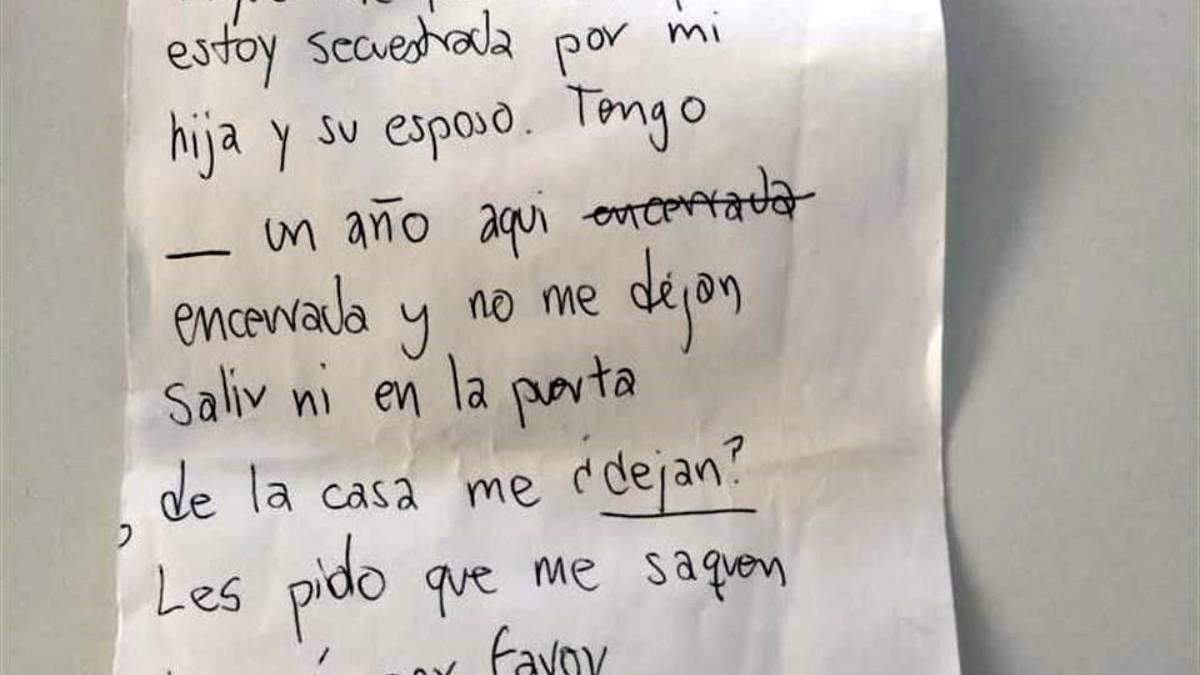 estoy secuestrada por mi
hija y su esposo. Tengo
__ un año aqui encerrada
encerrada y no me dejan
Salir ni en la puerta
de la casa me ¿dejan?
Les pido que me saquen
por favor